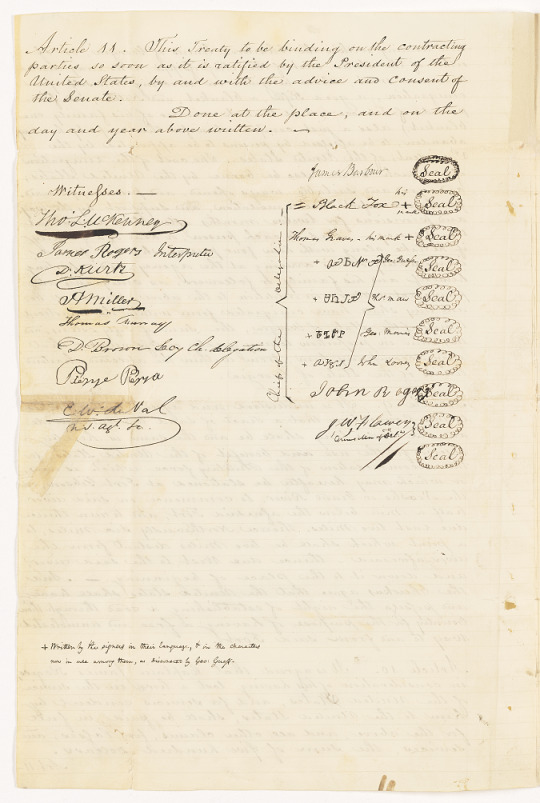 Article 11. This Treaty to be binding on the contracting
parties so soon as it is ratified by the President of the
United States, by and with the advice and consent of
the Senate.
Done at the place, and on the
day and year above written. —
James Barbour Seal
Witnesses. —
his
= Black Fox + Seal
mark
Tho: L. McKenney
Thomas Graves his mark + Seal
James Rogers Interpreter
+ Geo: Guess Seal
D. Kurtz
+ Seal
H Miller
Thomas Murray
+ Geo: Morris Seal
D Brown Secy Ch. delegation
+ Seal
Pierye Pierya
John Rogers Seal
Chiefs of the delegation
E. W. du Val
J W Flawey Seal
Seal
+ Written by the signers in their language, & in the characters
now in use among them, as discovered by Geo: Guess.